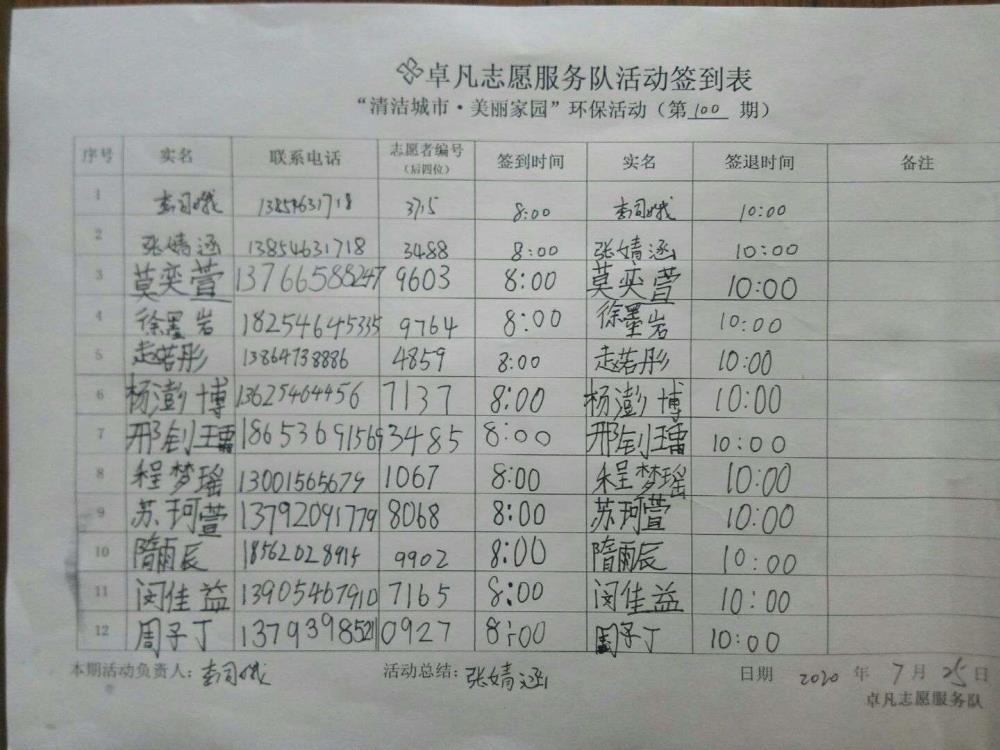 卓凡志愿服务队活动签到表
“清洁城市·美丽家园”环保活动（第 100 期）
序号 实名 联系电话 志愿者编号（后四位） 签到时间 实名 签退时间 备注
1 李司娥 13854631718 3715 8:00 李司娥 10:00
2 张婧涵 13854631718 3488 8:00 张婧涵 10:00
3 莫奕萱 13766588247 9603 8:00 莫奕萱 10:00
4 徐墨岩 18254645335 9764 8:00 徐墨岩 10:00
5 赵若彤 13864738886 4859 8:00 赵若彤 10:00
6 杨澎博 13625464456 7137 8:00 杨澎博 10:00
7 邢钊 18653691569 3485 8:00 邢钊 10:00
8 程梦瑶 13001565679 1067 8:00 程梦瑶 10:00
9 苏珂萱 13792091779 8068 8:00 苏珂萱 10:00
10 隋雨辰 18562028915 9902 8:00 隋雨辰 10:00
11 闵佳益 13905467910 7165 8:00 闵佳益 10:00
12 周子丁 13793985211 0927 8:00 周子丁 10:00
本期活动负责人：李司娥 活动总结：张婧涵 日期 2020 年 7 月 25 日
卓凡志愿服务队